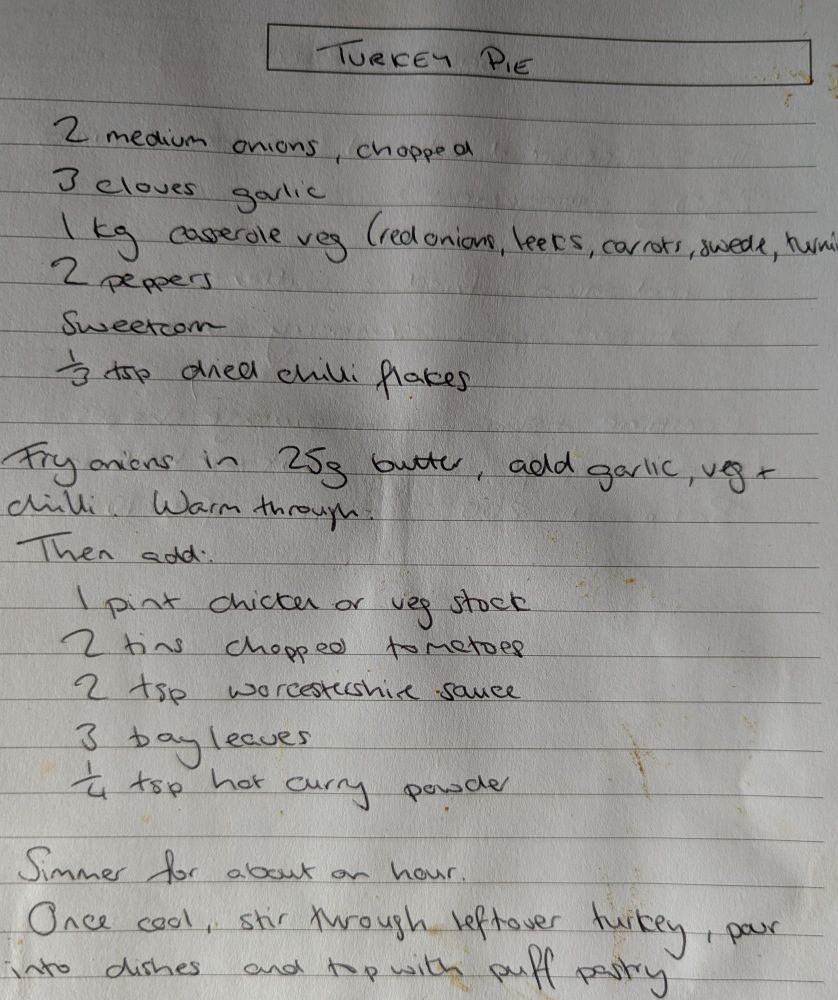 TURKEY PIE
2 medium onions, chopped
3 cloves garlic
1 kg casserole veg (red onions, leeks, carrots, swede, turni
2 peppers
Sweetcorn
1/3 tsp dried chilli flakes
Fry onions in 25g butter, add garlic, veg +
chilli. Warm through.
Then add:
1 pint chicken or veg stock
2 tins chopped tomatoes
2 tsp worcestershire sauce
3 bay leaves
1/4 tsp hot curry powder
Simmer for about an hour.
Once cool, stir through leftover turkey, pour
into dishes and top with puff pastry